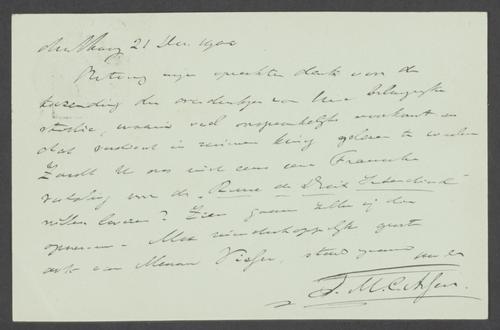 den Haag 21 Dec. 1900
mijn oprechten dank voor de
toezending der overdrukjes van Uwe belangrijke
studie, waarin veel
dat verdient in ruimen kring gelezen te worden
Zoudt U ons niet eens een Fransche
van de Revue de Droit International
willen leveren? Zeer gaarne zullen wij die
opnemen. Met vriendschappelijke groet
ook aan Mevrouw Visser, steeds gaarne
T. M. C. Asser